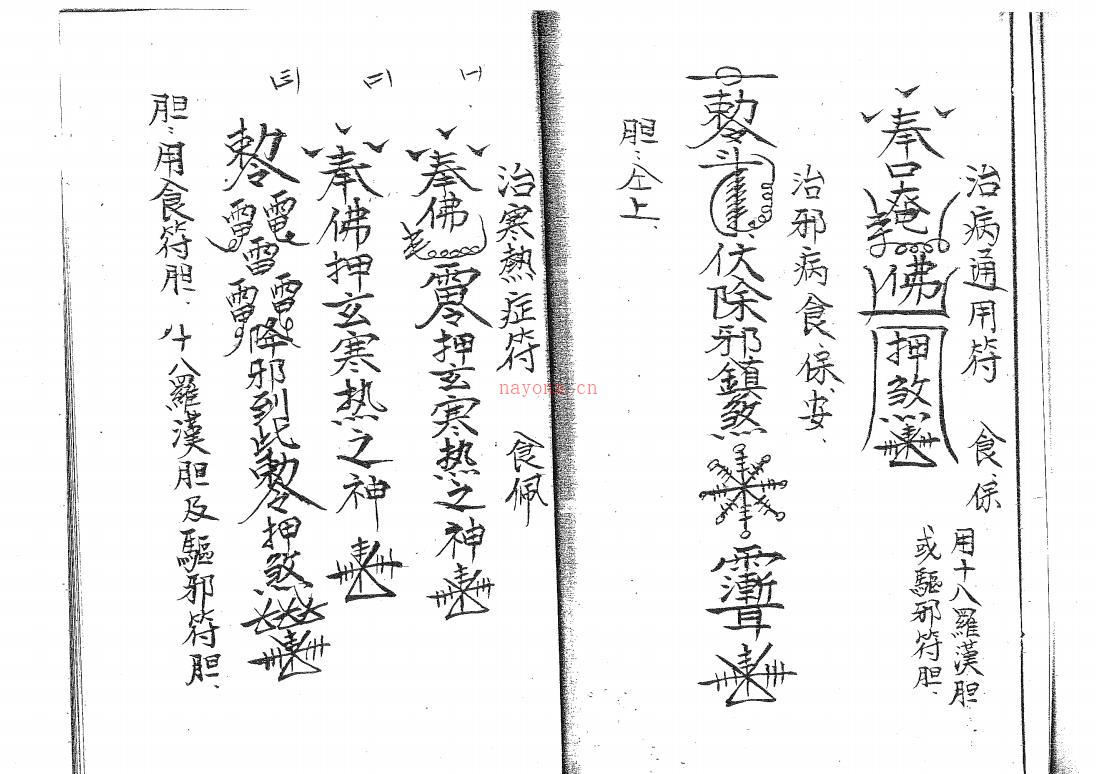 治病通用符 食、保
用十八羅漢胆
或驅邪符胆、
奉口奄佛押煞
治邪病食、保、安、
敕令斗伏除邪鎮煞
胆:仝上、
治寒熱症符 食佩
(一)
奉佛押玄寒热之神
(二)
奉佛押玄寒热之神
(三)
敕令雷電雷雷電降邪到此敕令押煞
胆:用食符胆、十八羅漢胆及驅邪符胆、
nayona.cn